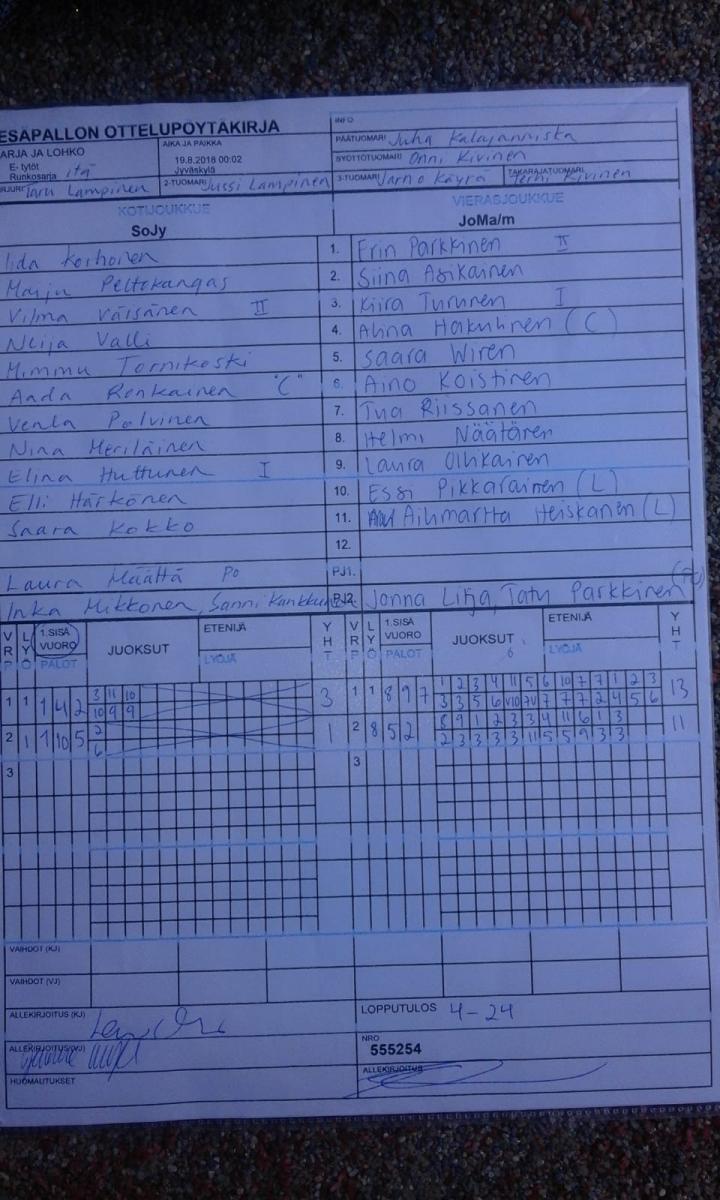 ESÄPALLON OTTELUPÖYTÄKIRJA
INFO
ARJA JA LOHKO
E- tytöt
Runkosarja itä
AIKA JA PAIKKA
19.8.2018 00:02
Jyväskylä
PÄÄTUOMARI Juha Kalajanniska
SYÖTTÖTUOMARI Onni Kivinen
RJURI Taru Lampinen
2-TUOMARI Jussi Lampinen
3-TUOMARI Jarno Käyrä
TAKARAJATUOMARI Terhi Kivinen
KOTIJOUKKUE
SoJy
VIERASJOUKKUE
JoMa/m
Iida Korhonen 1. Erin Parkkinen II
Marju Peltokangas 2. Siina Asikainen
Vilma Väisänen II 3. Kiira Turunen I
Neija Valli 4. Alina Hakulinen (C)
Mimmu Tornikoski 5. Saara Wiren
Aada Ronkainen "C" 6. Aino Koistinen
Venla Polvinen 7. Tua Riissanen
Nina Meriläinen 8. Helmi Näätänen
Elina Huttunen I 9. Laura Ollikainen
Elli Härkönen 10. Essi Pikkarainen (L)
Saara Kokko 11. Ailimartta Heiskanen (L)
12.
Laura Määttä Po PJ1.
Inka Mikkonen, Sanni PJ2. Jonna Lilja, Tatu Parkkinen
VRP LYÖ 1.SISÄ VUORO PALOT JUOKSUT ETENIJÄ LYÖJÄ YHT
VRP LYÖ 1.SISÄ VUORO PALOT JUOKSUT 6 ETENIJÄ LYÖJÄ YHT
1 1 1 4 2 3 11 10 3
10 9 9
1 1 8 9 7 1 2 3 4 11 5 6 10 7 7 1 2 3 13
2 1 1 10 5 2 1
6
2 8 5 2 8 9 1 2 3 3 4 11 6 1 3 11
2 3 3 3 3 11 5 5 9 3 3
3 3
VAIHDOT (KJ)
VAIHDOT (VJ)
ALLEKIRJOITUS (KJ)
LOPPUTULOS 4-24
ALLEKIRJOITUS (VJ)
NRO
555254
HUOMAUTUKSET
ALLEKIRJOITUS